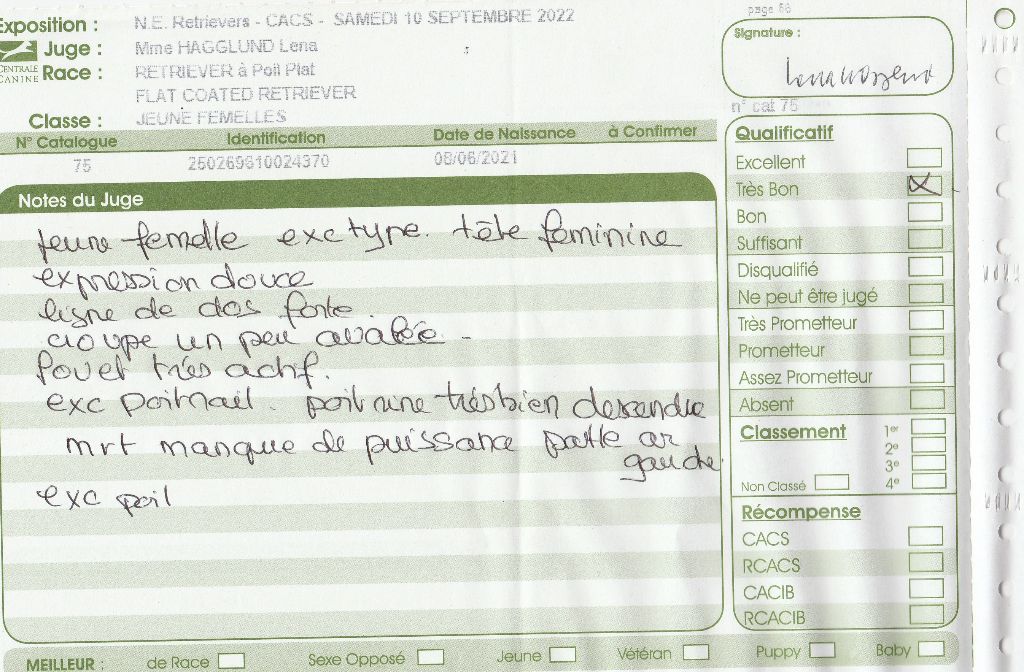 Exposition : N.E. Retrievers - CACS - SAMEDI 10 SEPTEMBRE 2022
page 66
CENTRALE CANINE
Juge : Mme HAGGLUND Lena
Race : RETRIEVER à Poil Plat
FLAT COATED RETRIEVER
Classe : JEUNE FEMELLES
Signature :
n° cat 75
N° Catalogue Identification Date de Naissance à Confirmer
75 250269610024370 08/06/2021
Notes du Juge
jeune femelle exc type. tête féminine
expression douce
ligne de dos forte.
croupe un peu avalée -
fouet très actif.
exc poitrail. poitrine très bien descendue
mvt manque de puissance patte ar
gauche
exc poil
Qualificatif
Excellent
Très Bon X
Bon
Suffisant
Disqualifié
Ne peut être jugé
Très Prometteur
Prometteur
Assez Prometteur
Absent
Classement 1er
2e
3e
Non Classé 4e
Récompense
CACS
RCACS
CACIB
RCACIB
MEILLEUR : de Race Sexe Opposé Jeune Vétéran Puppy Baby